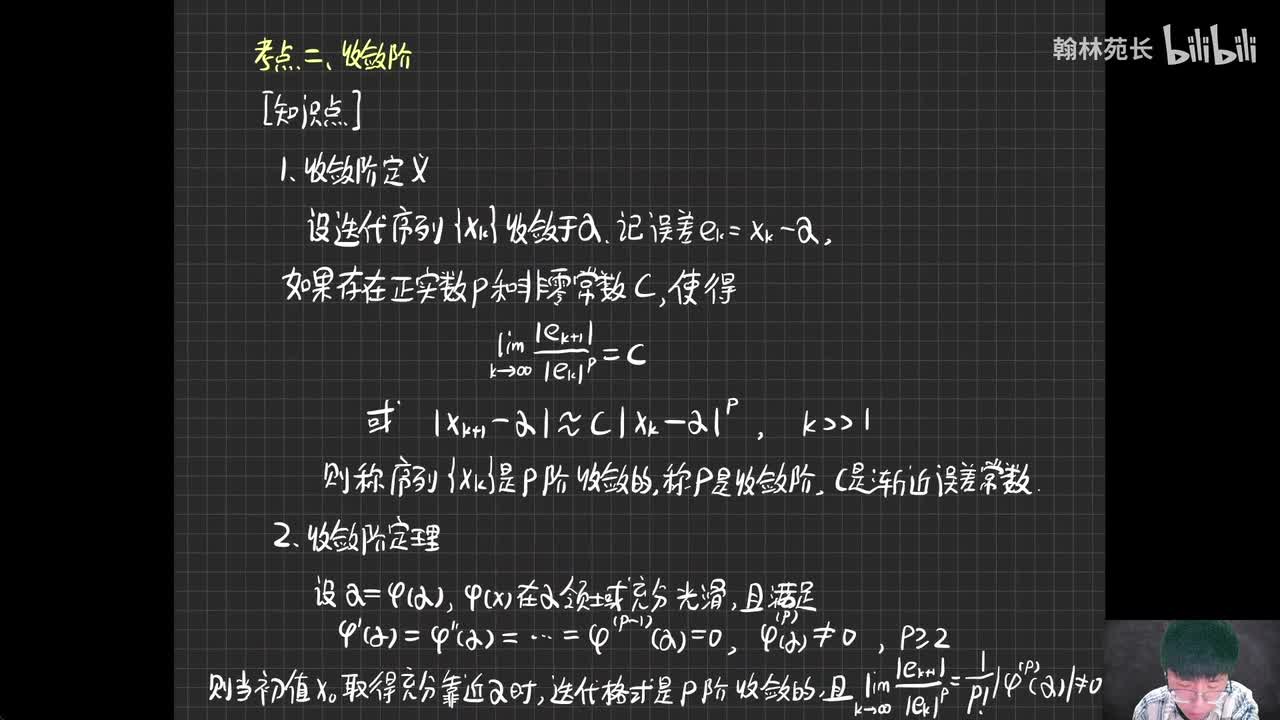 翰林苑长 bilibili
考点二、收敛阶
[知识点]
1、收敛阶定义
设迭代序列{x_k}收敛于α.记误差e_k=x_k-α,
如果存在正实数p和非零常数C,使得
lim_{k→∞} |e_{k+1}|/|e_k|^p = C
或 |x_{k+1}-α|≈C|x_k-α|^p, k>>1
则称序列{x_k}是P阶收敛的,称P是收敛阶,C是渐近误差常数.
2、收敛阶定理
设α=φ(α),φ(x)在α领域充分光滑,且满足
φ'(α)=φ''(α)=…=φ^{(p-1)}(α)=0, φ^{(p)}(α)≠0, P≥2
则当初值x_0取得充分靠近α时,迭代格式是P阶收敛的,且 lim_{k→∞} |e_{k+1}|/|e_k|^p = 1/p! |φ^{(p)}(α)|≠0